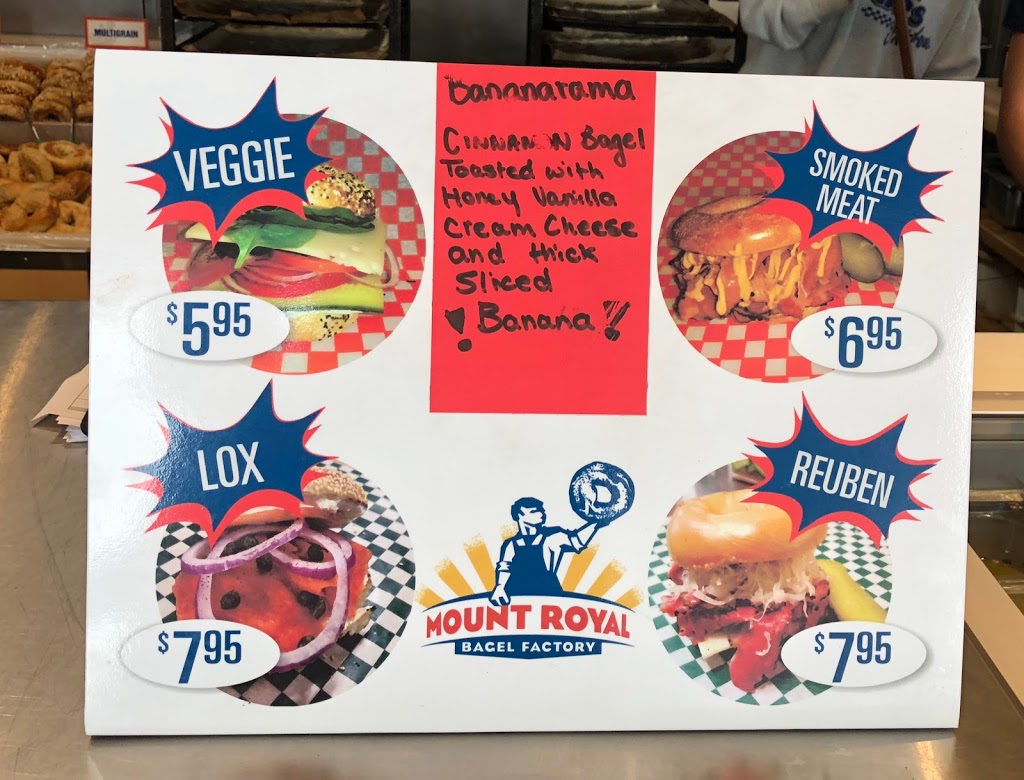 MULTIGRAIN
VEGGIE
$5.95
Bananarama
CINNAMON Bagel
Toasted with
Honey Vanilla
Cream Cheese
and thick
Sliced
Banana
SMOKED
MEAT
$6.95
LOX
$7.95
MOUNT ROYAL
BAGEL FACTORY
REUBEN
$7.95